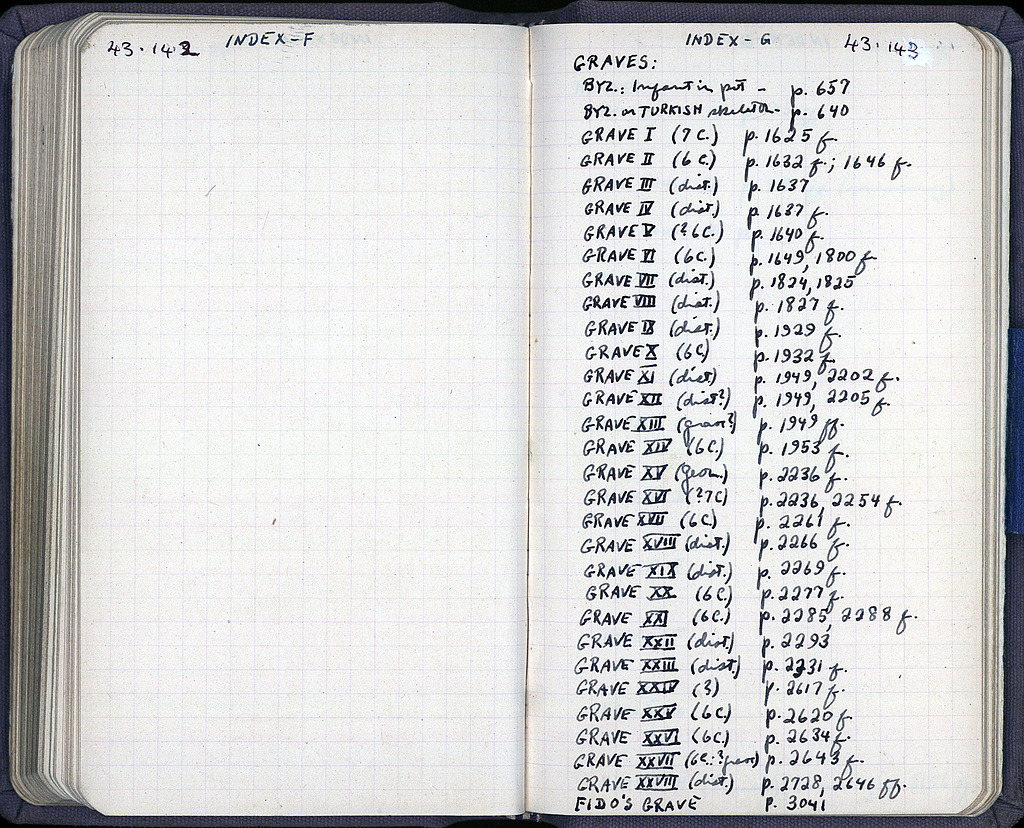 43.142 INDEX-F
INDEX-G 43.143
GRAVES:
BYZ.: Infant in pot - p. 657
BYZ. or TURKISH skeleton - p. 640
GRAVE I (7 C.) p. 1625 f.
GRAVE II (6 C.) p. 1632 f.; 1646 f.
GRAVE III (dist.) p. 1637
GRAVE IV (dist.) p. 1637 f.
GRAVE V (?6C.) p. 1640 f.
GRAVE VI (6C.) p. 1649, 1800 f.
GRAVE VII (dist.) p. 1824, 1825
GRAVE VIII (dist.) p. 1827 f.
GRAVE IX (dist.) p. 1929 f.
GRAVE X (6C) p. 1932 f.
GRAVE XI (dist) p. 1949, 2202 f.
GRAVE XII (dist?) p. 1949, 2205 f.
GRAVE XIII p. 1949 ff.
GRAVE XIV (6C.) p. 1953 f.
GRAVE XV (geom.) p. 2236 f.
GRAVE XVI (?7C) p. 2236, 2254 f.
GRAVE XVII (6C.) p. 2261 f.
GRAVE XVIII (dist.) p. 2266 f.
GRAVE XIX (dist.) p. 2269 f.
GRAVE XX (6C.) p. 2277 f.
GRAVE XXI (6C.) p. 2285, 2288 f.
GRAVE XXII (dist.) p. 2293
GRAVE XXIII (dist.) p. 2231 f.
GRAVE XXIV (?) p. 2617 f.
GRAVE XXV (6C.) p. 2620 f.
GRAVE XXVI (6C.) p. 2634 f.
GRAVE XXVII (6C.: p. 2643 f.
GRAVE XXVIII (dist.) p. 2728, 2646 ff.
FIDO'S GRAVE P. 3041